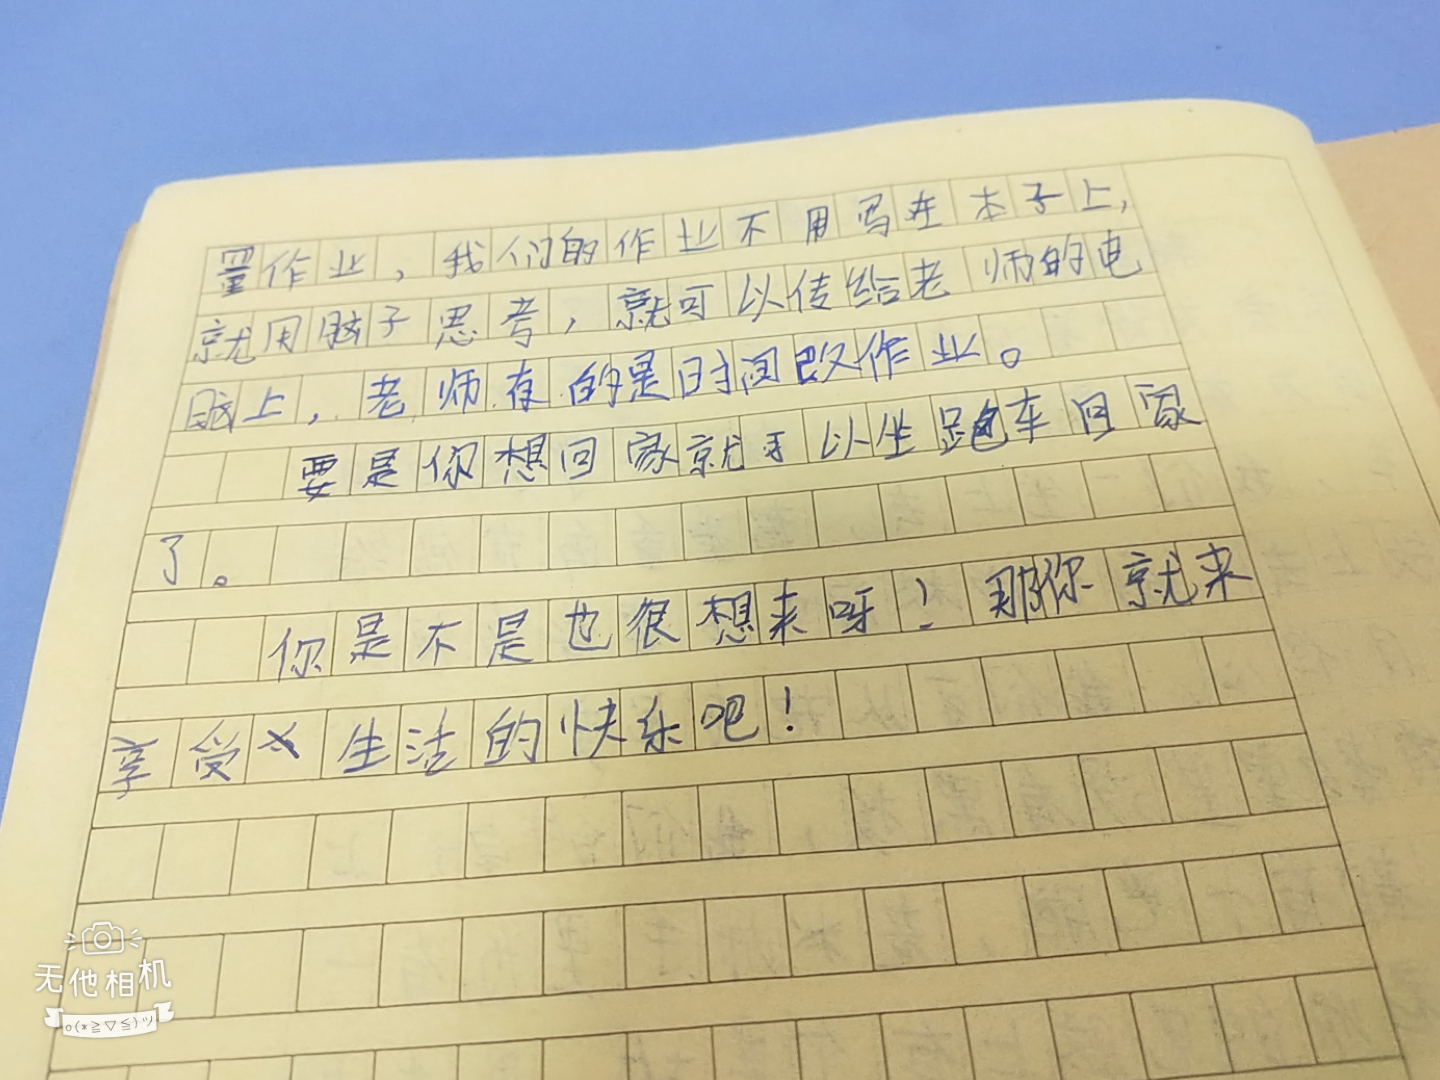 置作业，我们的作业不用写在本子上，
就用脑子思考，就可以传给老师的电
脑上，老师有的是时间改作业。
要是你想回家就可以坐跑车回家
了。
你是不是也很想来呀！那你就来
享受生活的快乐吧！
无他相机
o(*≧▽≦)ツ